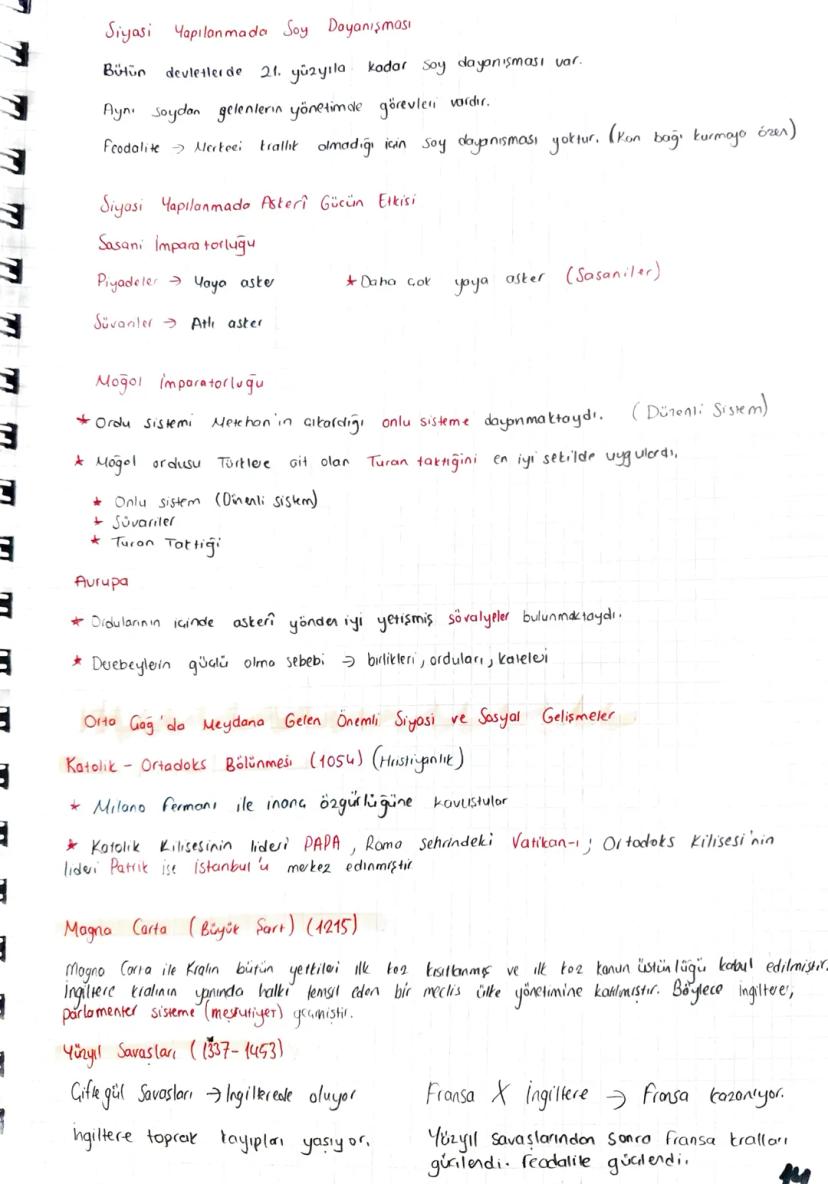 Siyasi Yapılanmada Soy Dayanışması
Bütün devletlerde 21. yüzyıla kadar soy dayanışması var.
Aynı soydan gelenlerin yönetimde görevleri vardır.
Feodalite → Merkezi krallık olmadığı için soy dayanışması yoktur. (Kan bağı kurmaya özen)
Siyasi Yapılanmada Askerî Gücün Etkisi
Sasani İmparatorluğu
Piyadeler → Yaya asker ★ Daha çok yaya asker (Sasaniler)
Süvariler → Atlı asker
Moğol İmparatorluğu
★ Ordu sistemi Metehan'ın çıkardığı onlu sisteme dayanmaktaydı. (Düzenli Sistem)
★ Moğol ordusu Türklere ait olan Turan taktiğini en iyi şekilde uygulardı.
★ Onlu sistem (Düzenli sistem)
★ Süvariler
★ Turan Taktiği
Avrupa
★ Ordularının içinde askerî yönden iyi yetişmiş şövalyeler bulunmaktaydı.
★ Derebeylerin güçlü olma sebebi → birlikleri, orduları, kaleleri
Orta Çağ'da Meydana Gelen Önemli Siyasi ve Sosyal Gelişmeler
Katolik - Ortadoks Bölünmesi (1054) (Hristiyanlık)
★ Milano Fermanı ile inanç özgürlüğüne kavuştular
★ Katolik Kilisesinin lideri PAPA, Roma şehrindeki Vatikan-ı; Ortodoks Kilisesi'nin
lideri Patrik ise İstanbul'u merkez edinmiştir
Magna Carta (Büyük Şart) (1215)
Magna Carta ile Kralın bütün yetkileri ilk kez kısıtlanmış ve ilk kez kanun üstünlüğü kabul edilmiştir.
İngiltere kralının yanında halkı temsil eden bir meclis ülke yönetimine katılmıştır. Böylece İngiltere,
parlamenter sisteme (meşrutiyet) geçmiştir.
Yüzyıl Savaşları (1337-1453)
Çifte gül Savaşları → İngilterede oluyor Fransa X İngiltere → Fransa kazanıyor.
İngiltere toprak kayıpları yaşıyor. Yüzyıl savaşlarından sonra Fransa kralları
güçlendi. Feodalite güçlendi.
14